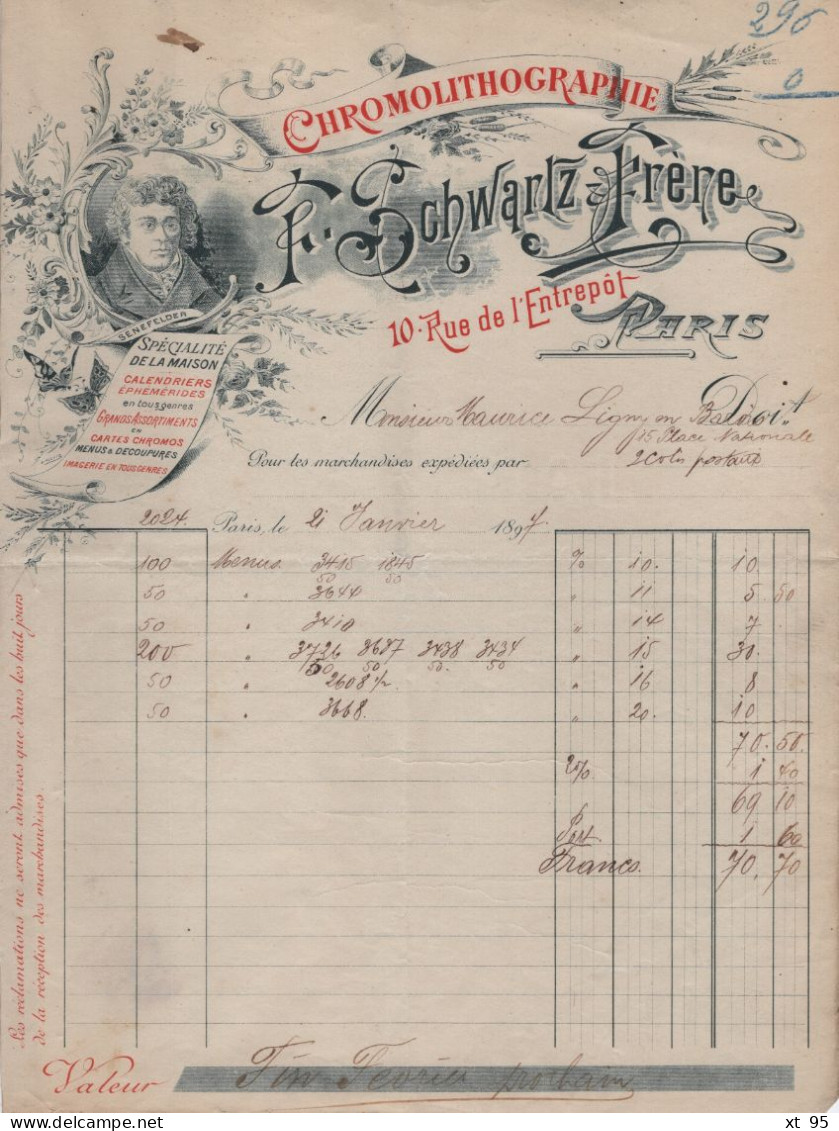 296
0
CHROMOLITHOGRAPHIE
F. Schwartz & Frère
10 Rue de l'Entrepôt
PARIS
SENEFELDER
SPÉCIALITÉ
DE LA MAISON
CALENDRIERS
ÉPHÉMÉRIDES
en tous genres
GRANDS ASSORTIMENTS
EN
CARTES CHROMOS
MENUS & DÉCOUPURES
IMAGERIE EN TOUS GENRES
Doit
Monsieur Maurice Ligny en
15 Place Nationale
Pour les marchandises expédiées par 2 colis postaux
2024. Paris, le 21 Janvier 1897
100 Menus 3415 1845 % 10. 10.
50 50
50 " 3644 " 11 5 50
50 " 3410 " 14 7
200 " 3726 3687 3438 3434 " 15 30.
50 50 50 50
50 " 2608 1/2 " 16 8
50 " 3668. " 20. 10
70. 50
2% 1 40
69 10
Port 1 60
Francs. 70. 70
Les réclamations ne seront admises que dans les huit jours
de la réception des marchandises.
Valeur Fin Fevrier prochain
xt 95